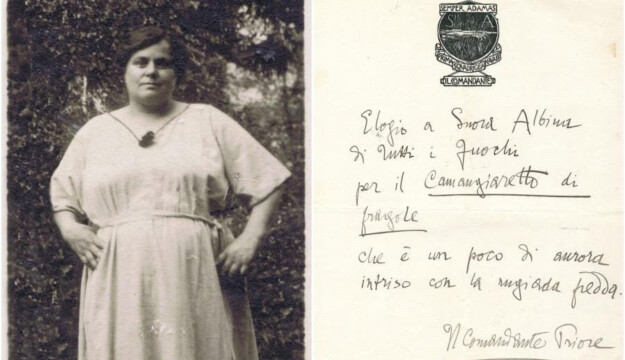 SEMPER ADAMAS
IL COMANDANTE
Elogio a Suora Albina
di tutti i Fuochi
per il Camangiaretto di
fragole
che è un poco di aurora
intriso con la rugiada fredda.
Il Comandante Priore